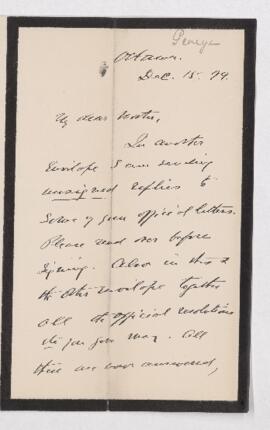 Ottawa.
Dec. 15. 94.
My dear
In another
Envelope I am sending
unsigned replies to
Some of your official letters.
Please read over before
Signing. in this &
the other envelope together
all the official resolutions
you gave may. All
these are now answered,